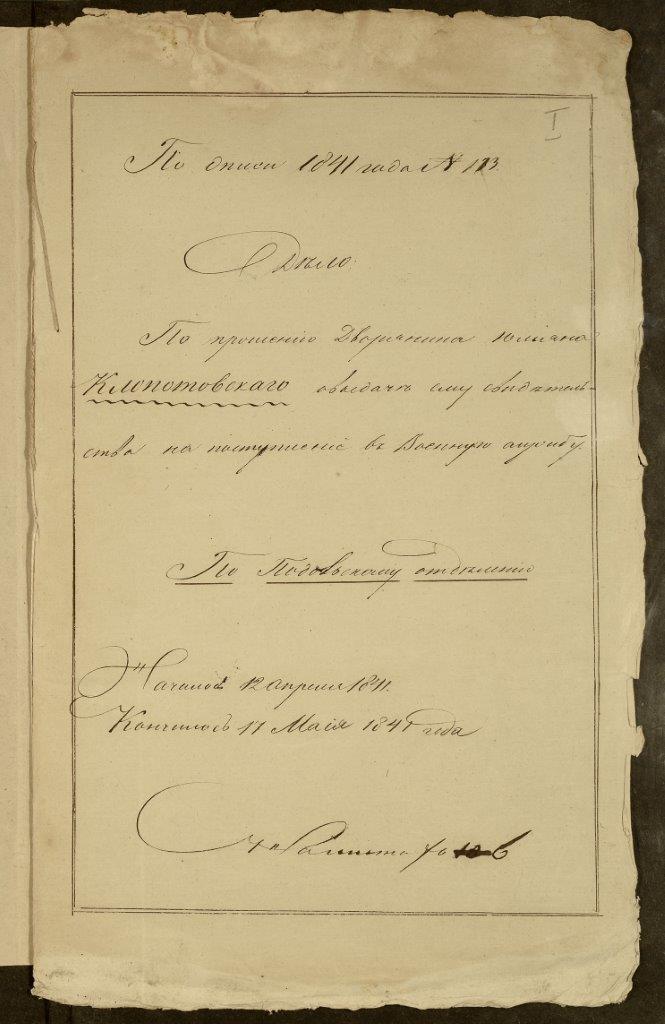 I
По описи 1841 года № 113.
Дѣло.
По прошенію Дворянина Юліана
Клопотовскаго о выдачѣ ему свидѣтель-
ства на поступленіе въ Военную службу.
По Подольскому отдѣленію
Началось 12 апреля 1841.
Кончилось 17 Маія 1841 года
На